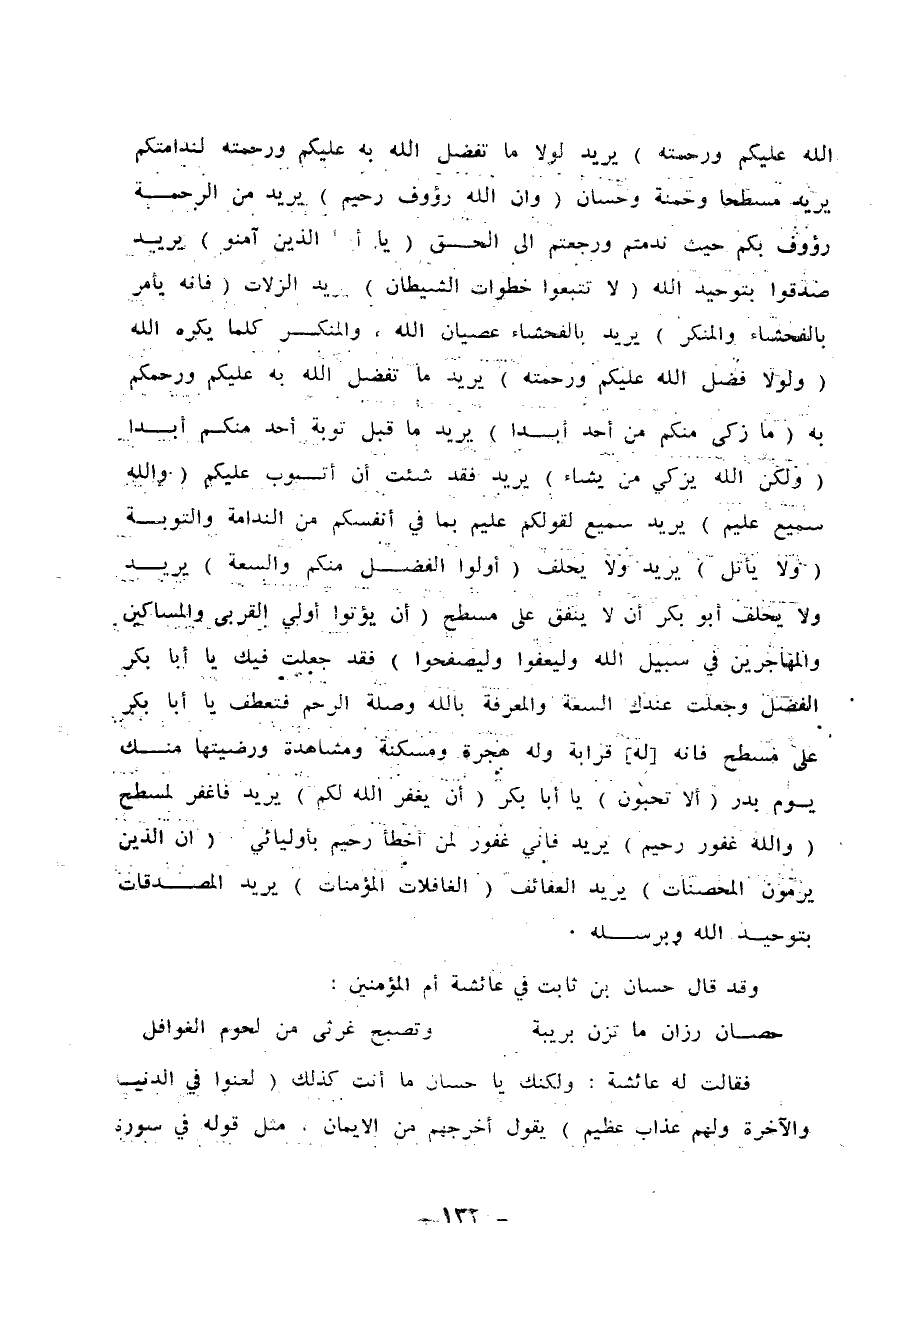 الله عليكم ورحمته ) يريد لولا ما تفضل الله به عليكم ورحمته لندامتكم
يريد مسطحا وحمنة وحسان ( وان الله رؤوف رحيم ) يريد من الرحمة
رؤوف بكم حيث ندمتم ورجعتم الى الحق ( يا أ الذين آمنو ) يريد
صدقوا بتوحيد الله ( لا تتبعوا خطوات الشيطان ) يريد الزلات ( فانه يأمر
بالفحشاء والمنكر ) يريد بالفحشاء عصيان الله ، والمنكر كلما يكره الله
( ولولا فضل الله عليكم ورحمته ) يريد ما تفضل الله به عليكم ورحمكم
به ( ما زكى منكم من أحد أبدا ) يريد ما قبل توبة أحد منكم أبدا
( ولكن الله يزكي من يشاء ) يريد فقد شئت أن أتوب عليكم ( والله
سميع عليم ) يريد سميع لقولكم عليم بما في أنفسكم من الندامة والتوبة
( ولا يأتل ) يريد ولا يحلف ( أولوا الفضل منكم والسعة ) يريد
ولا يحلف أبو بكر أن لا ينفق على مسطح ( أن يؤتوا أولي القربى والمساكين
والمهاجرين في سبيل الله وليعفوا وليصفحوا ) فقد جعلت فيك يا أبا بكر
الفضل وجعلت عندك السعة والمعرفة بالله وصلة الرحم فتعطف يا أبا بكر
على مسطح فانه [له] قرابة وله هجرة ومسكنة ومشاهدة ورضيتها منك
يوم بدر ( ألا تحبون ) يا أبا بكر ( أن يغفر الله لكم ) يريد فاغفر لمسطح
( والله غفور رحيم ) يريد فاني غفور لمن أخطأ رحيم بأوليائي ( ان الذين
يرمون المحصنات ) يريد العفائف ( الغافلات المؤمنات ) يريد المصدقات
بتوحيد الله وبرسله .
وقد قال حسان بن ثابت في عائشة أم المؤمنين :
حصان رزان ما تزن بريبة وتصبح غرثى من لحوم الغوافل
فقالت له عائشة : ولكنك يا حسان ما أنت كذلك ( لعنوا في الدنيا
والآخرة ولهم عذاب عظيم ) يقول أخرجهم من الايمان ، مثل قوله في سورة
- ١٣٢ -